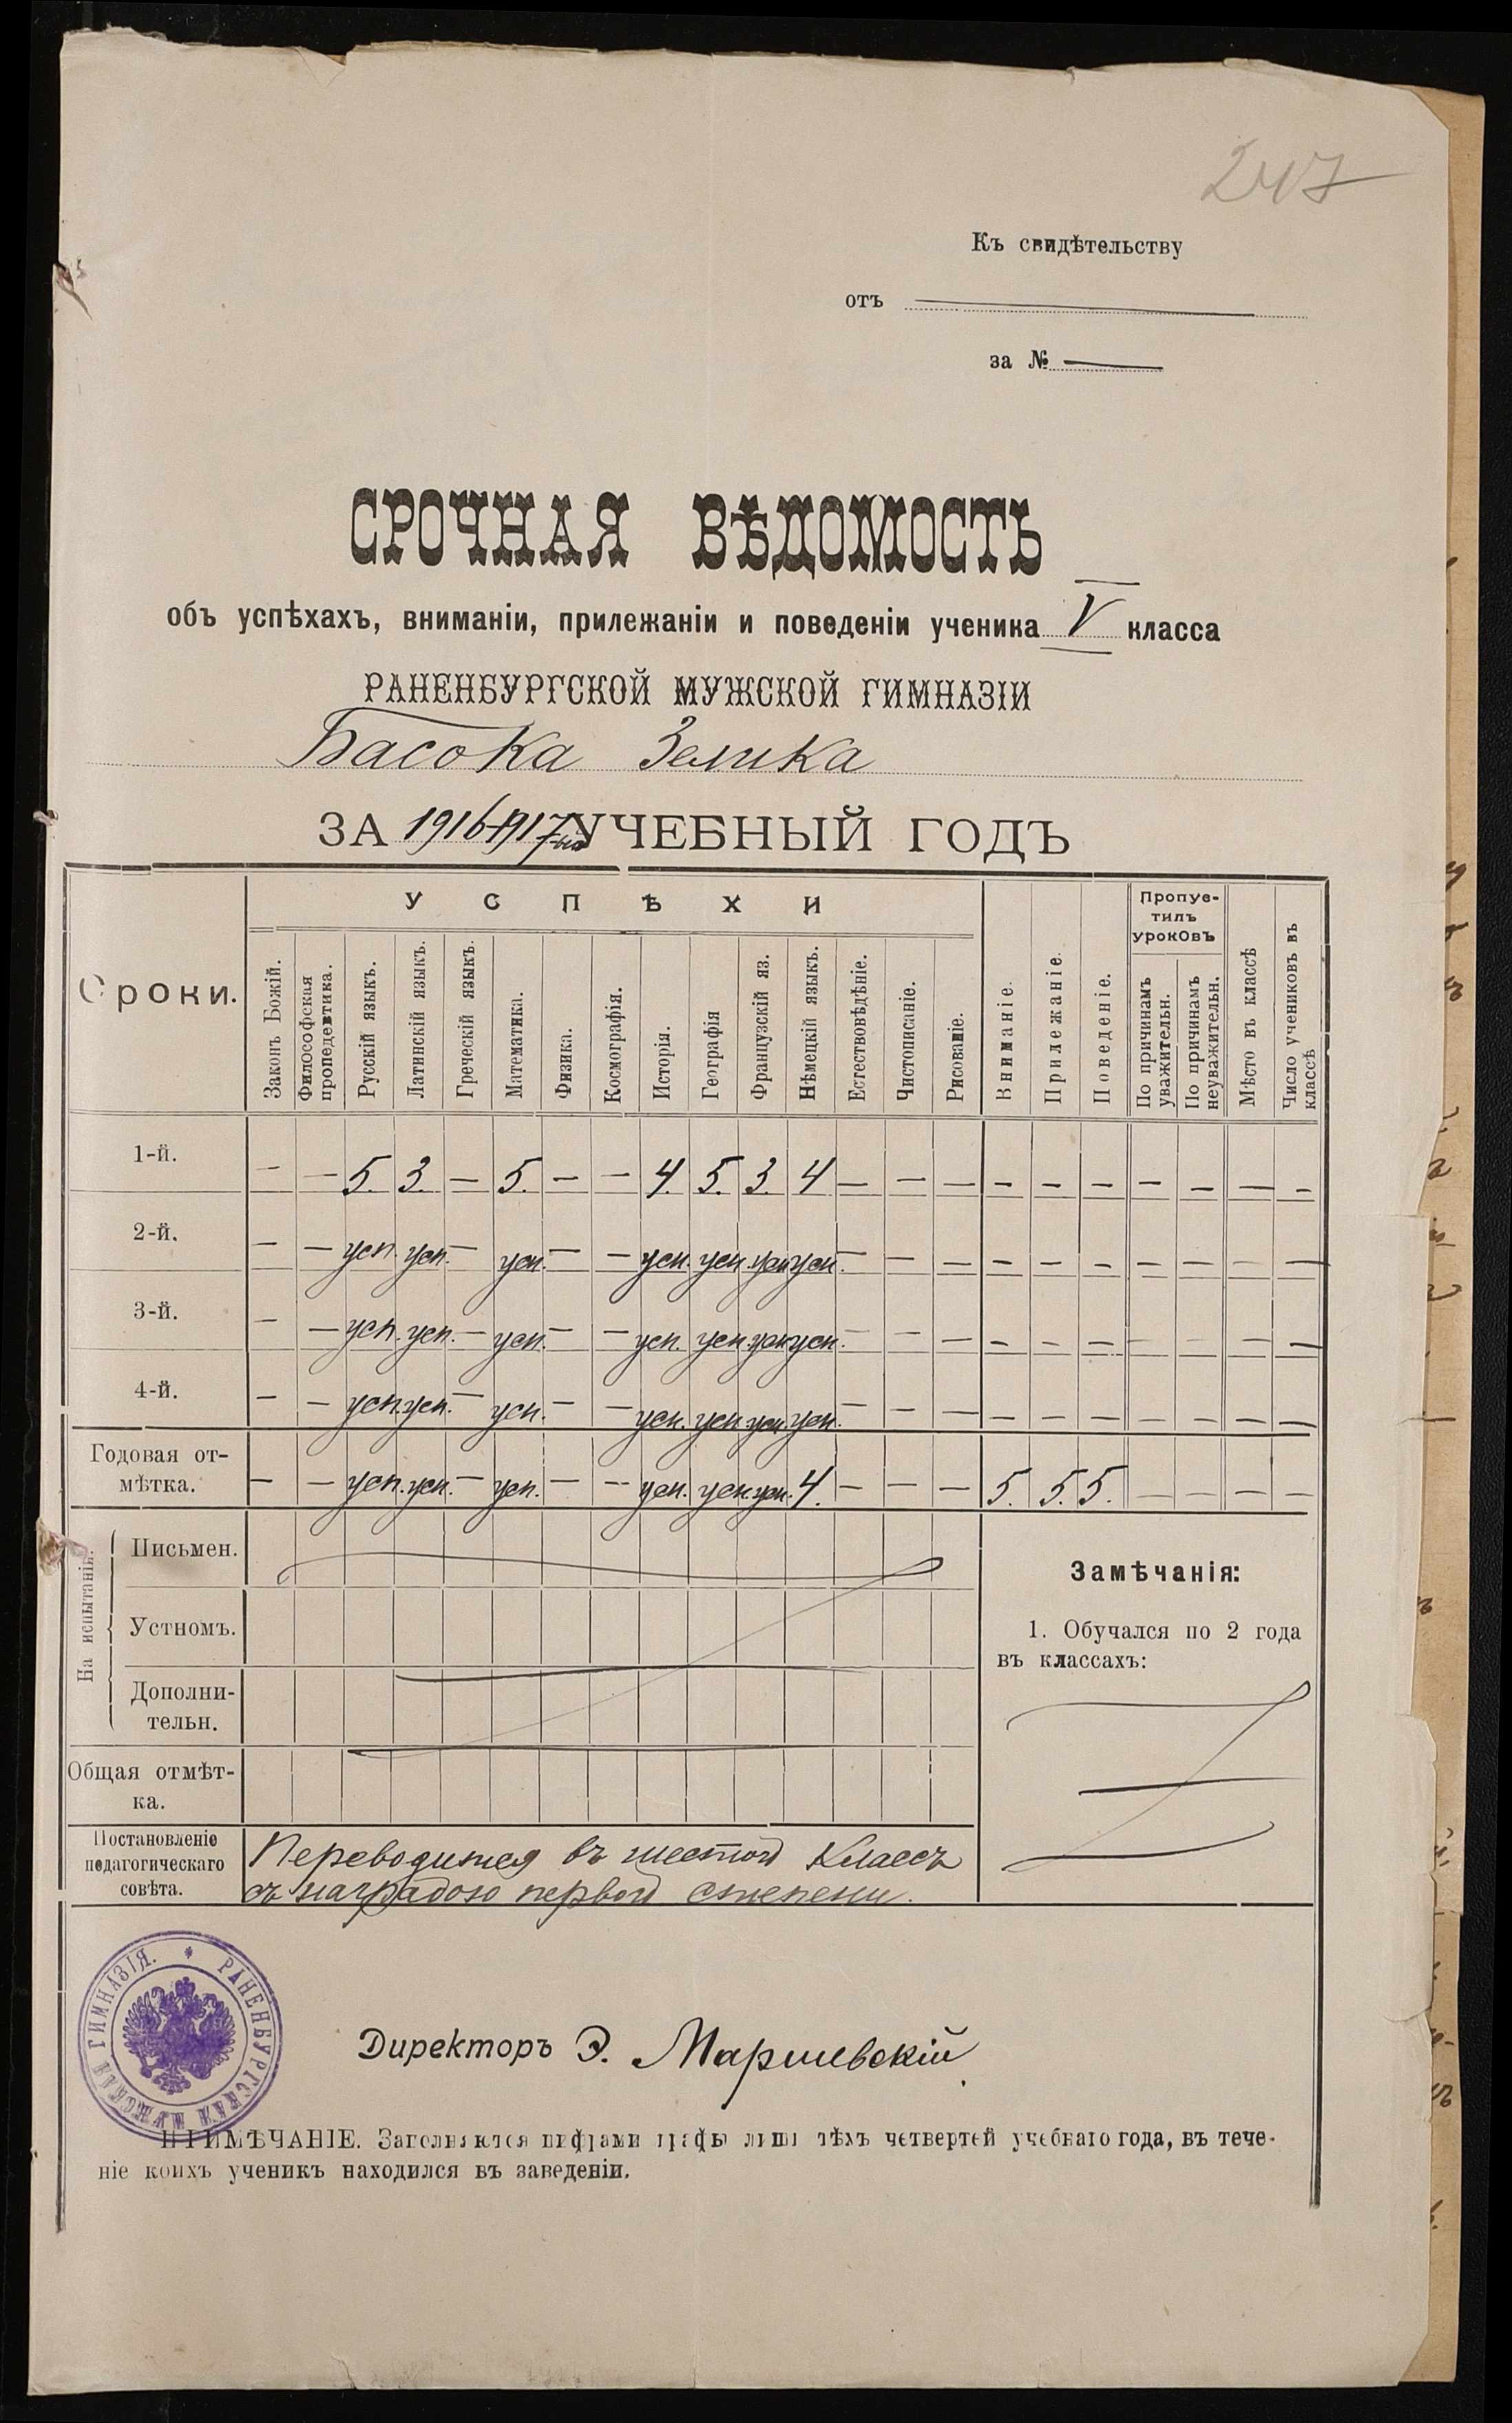 247
Къ свидѣтельству
отъ
за №
СРОЧНАЯ ВѢДОМОСТЬ
объ успѣхахъ, вниманіи, прилежаніи и поведеніи ученика V класса
РАНЕНБУРГСКОЙ МУЖСКОЙ ГИМНАЗІИ
Басока Зелика
ЗА 1916-1917 УЧЕБНЫЙ ГОДЪ
Сроки.
УСПѢХИ
Законъ Божій.
Философская пропедевтика.
Русскій языкъ.
Латинскій языкъ.
Греческій языкъ.
Математика.
Физика.
Космографія.
Исторія.
Географія
Французскій яз.
Нѣмецкій языкъ.
Естествовѣдѣніе.
Чистописаніе.
Рисованіе.
Вниманіе.
Прилежаніе.
Поведеніе.
Пропус-
тилъ
уроковъ
По причинамъ уважительн.
По причинамъ неуважительн.
Мѣсто въ классѣ
Число учениковъ въ классѣ
1-й. — — 5. 3. — 5. — — 4. 5. 3. 4 — — — — — — — — — —
2-й. — — усп. усп. — усп. — — усп. усп. усп. усп. — — — — — — — — — —
3-й. — — усп. усп. — усп. — — усп. усп. усп. усп. — — — — — — — — — —
4-й. — — усп. усп. — усп. — — усп. усп. усп. усп. — — — — — — — — — —
Годовая от-
мѣтка. — — усп. усп. — усп. — — усп. усп. усп. 4. — — — 5. 5. 5. — — — —
На испытаніи.
Письмен.
Устномъ.
Дополни-
тельн.
Общая отмѣт-
ка.
Замѣчанія:
1. Обучался по 2 года
въ классахъ:
Постановленіе
педагогическаго
совѣта.
Переводится въ шестой классъ
съ наградою первой степени.
РАНЕНБУРГСКАЯ МУЖСКАЯ ГИМНАЗІЯ.
Директоръ Э. Маршевскій
ПРИМѢЧАНІЕ. Заполняются цифрами графы лишь тѣхъ четвертей учебнаго года, въ тече-
ніе коихъ ученикъ находился въ заведеніи.